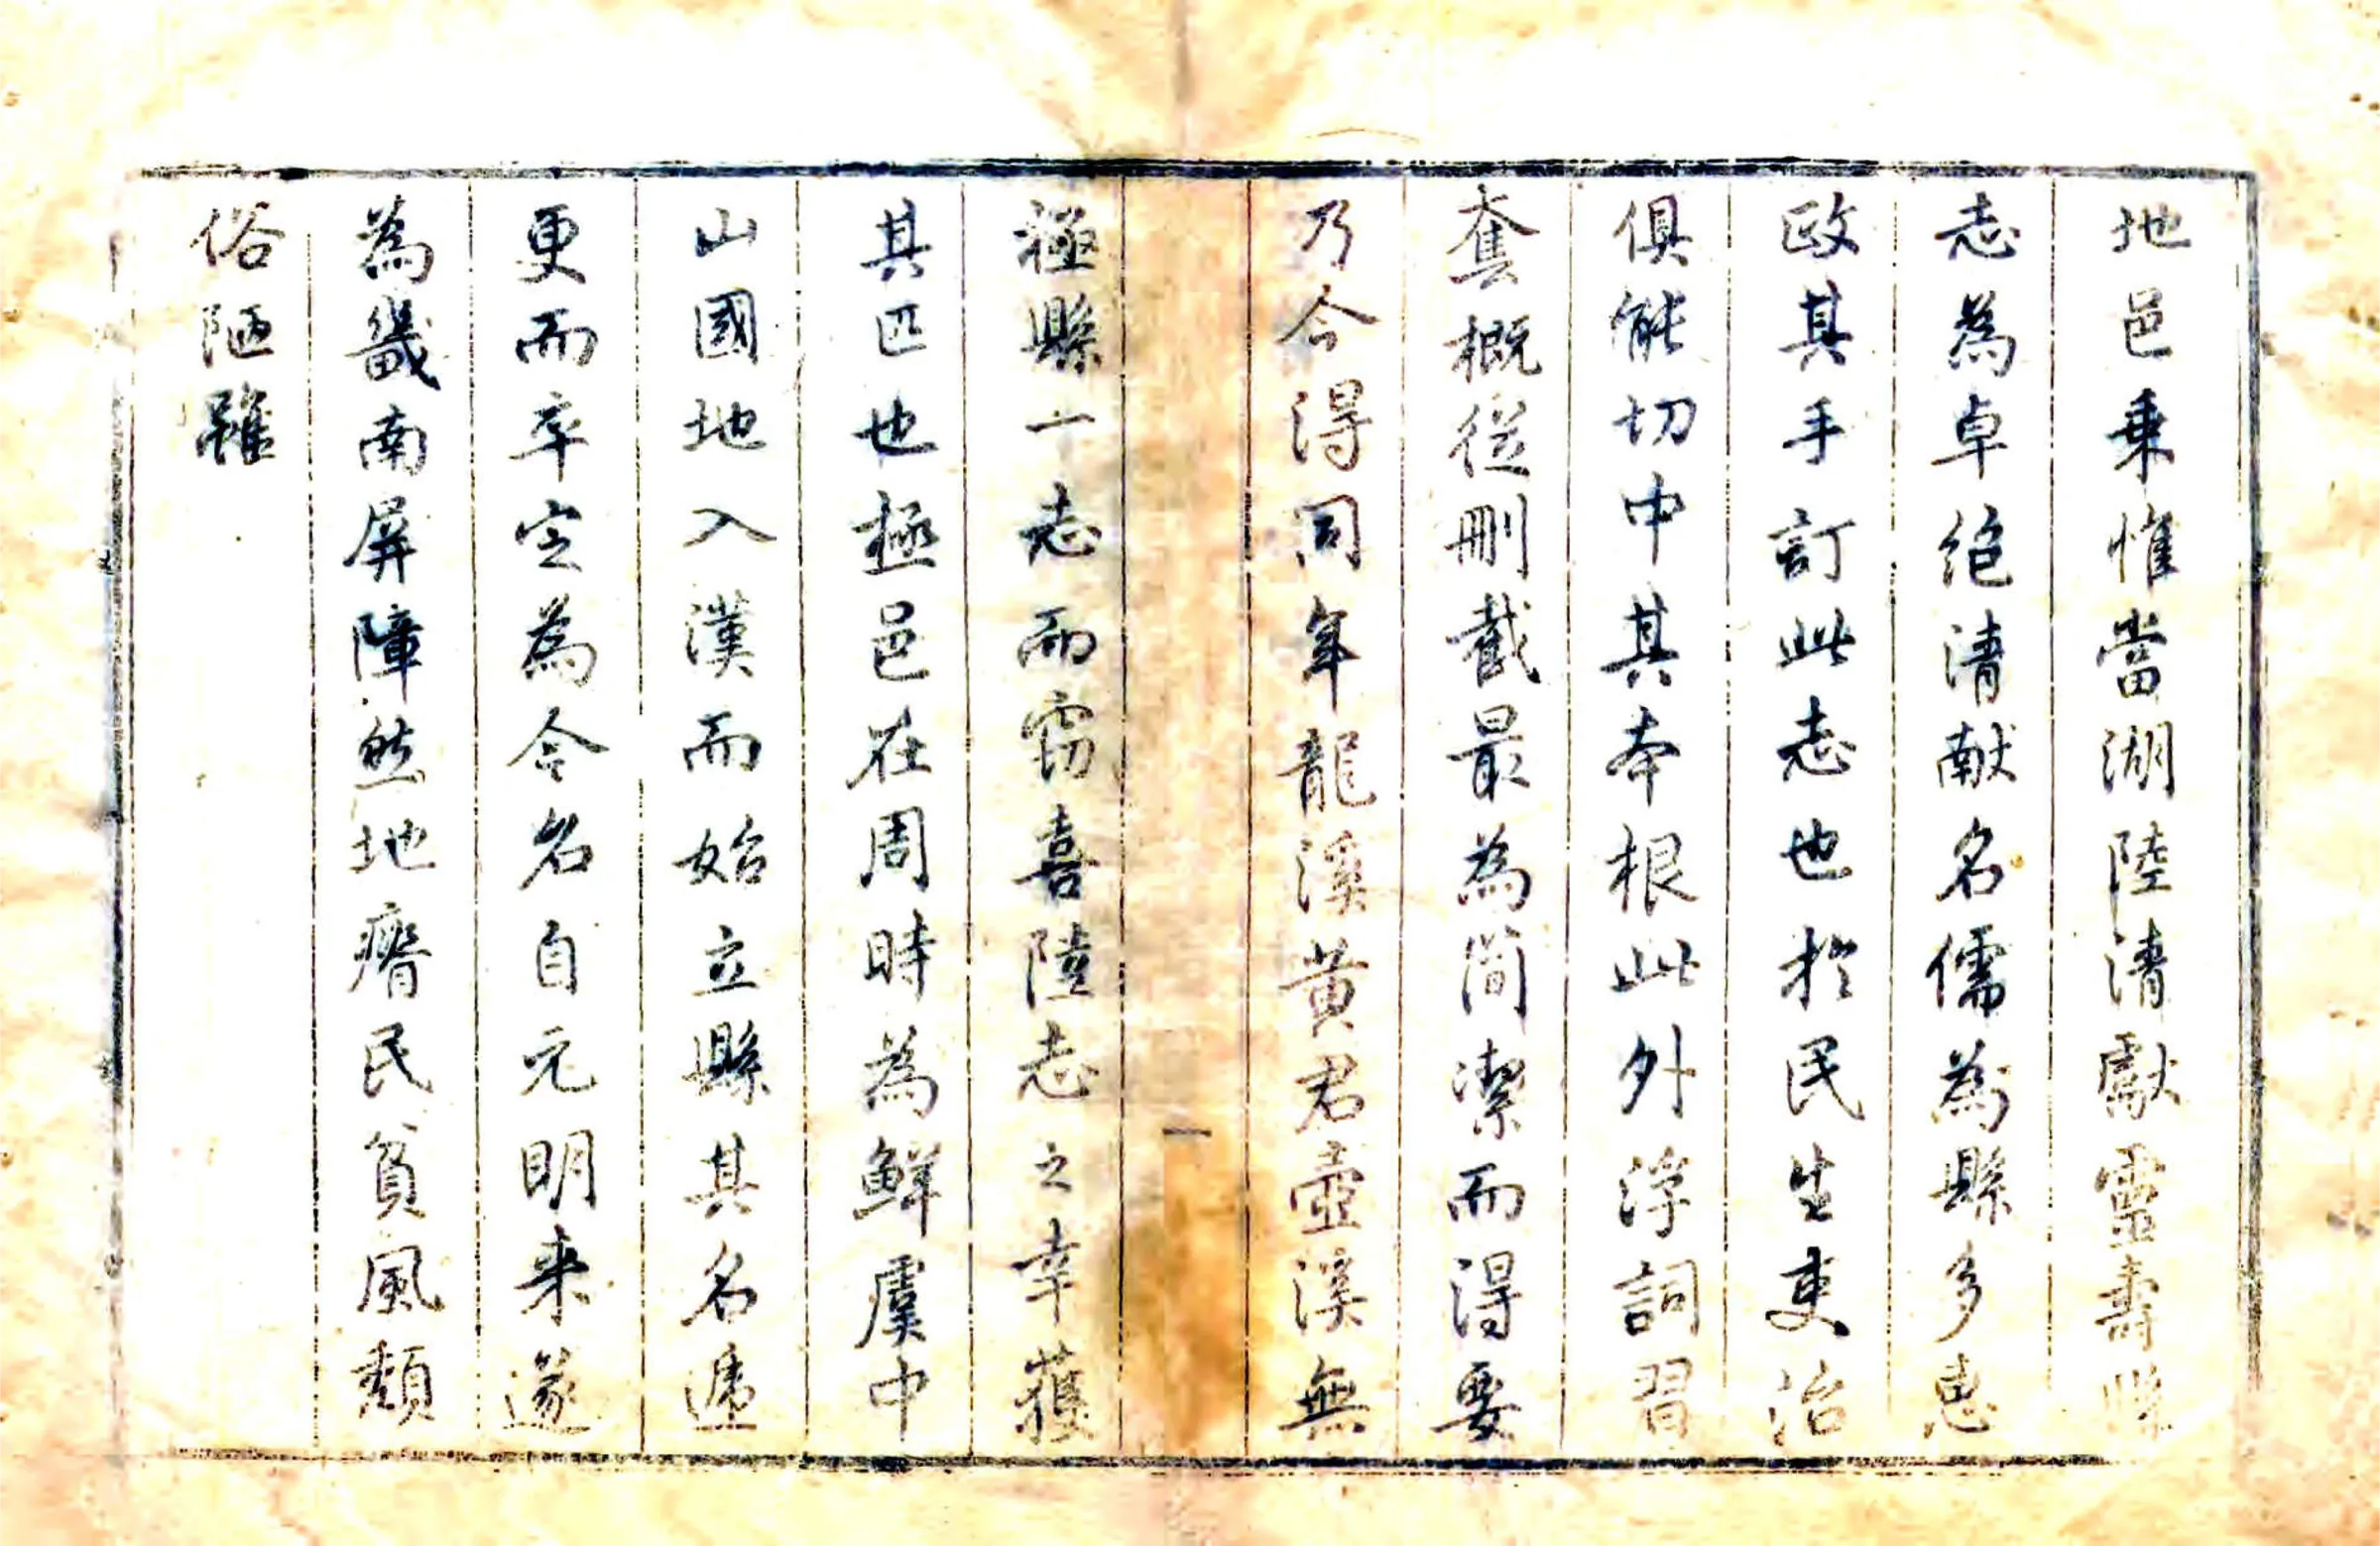 地邑乗惟當湖陸清獻靈壽縣
志為卓絶清献名儒為縣多惠
政其手訂此志也於民生吏治
俱能切中其本根此外浮詞習
套概從刪截最為簡潔而得要
乃今得同年龍溪黄君壺溪無
極縣一志而窃喜陸志之幸獲
一
其匹也極邑在周時為鮮虞中
山國地入漢而始立縣其名遞
更而卒定為今名自元明来遂
為畿南屏障然地瘠民貧風頽
俗陋雖